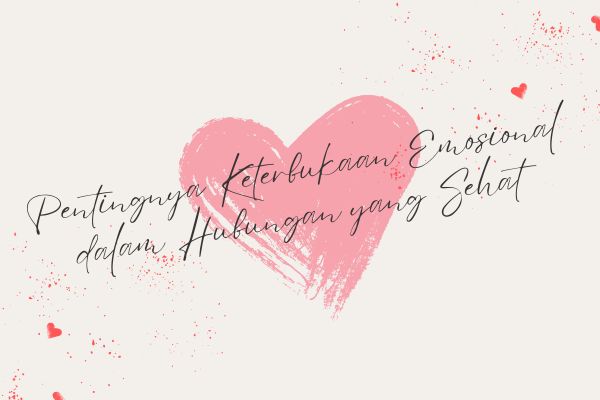 Pentingnya Keterbukaan Emosional
dalam Hubungan yang Sehat